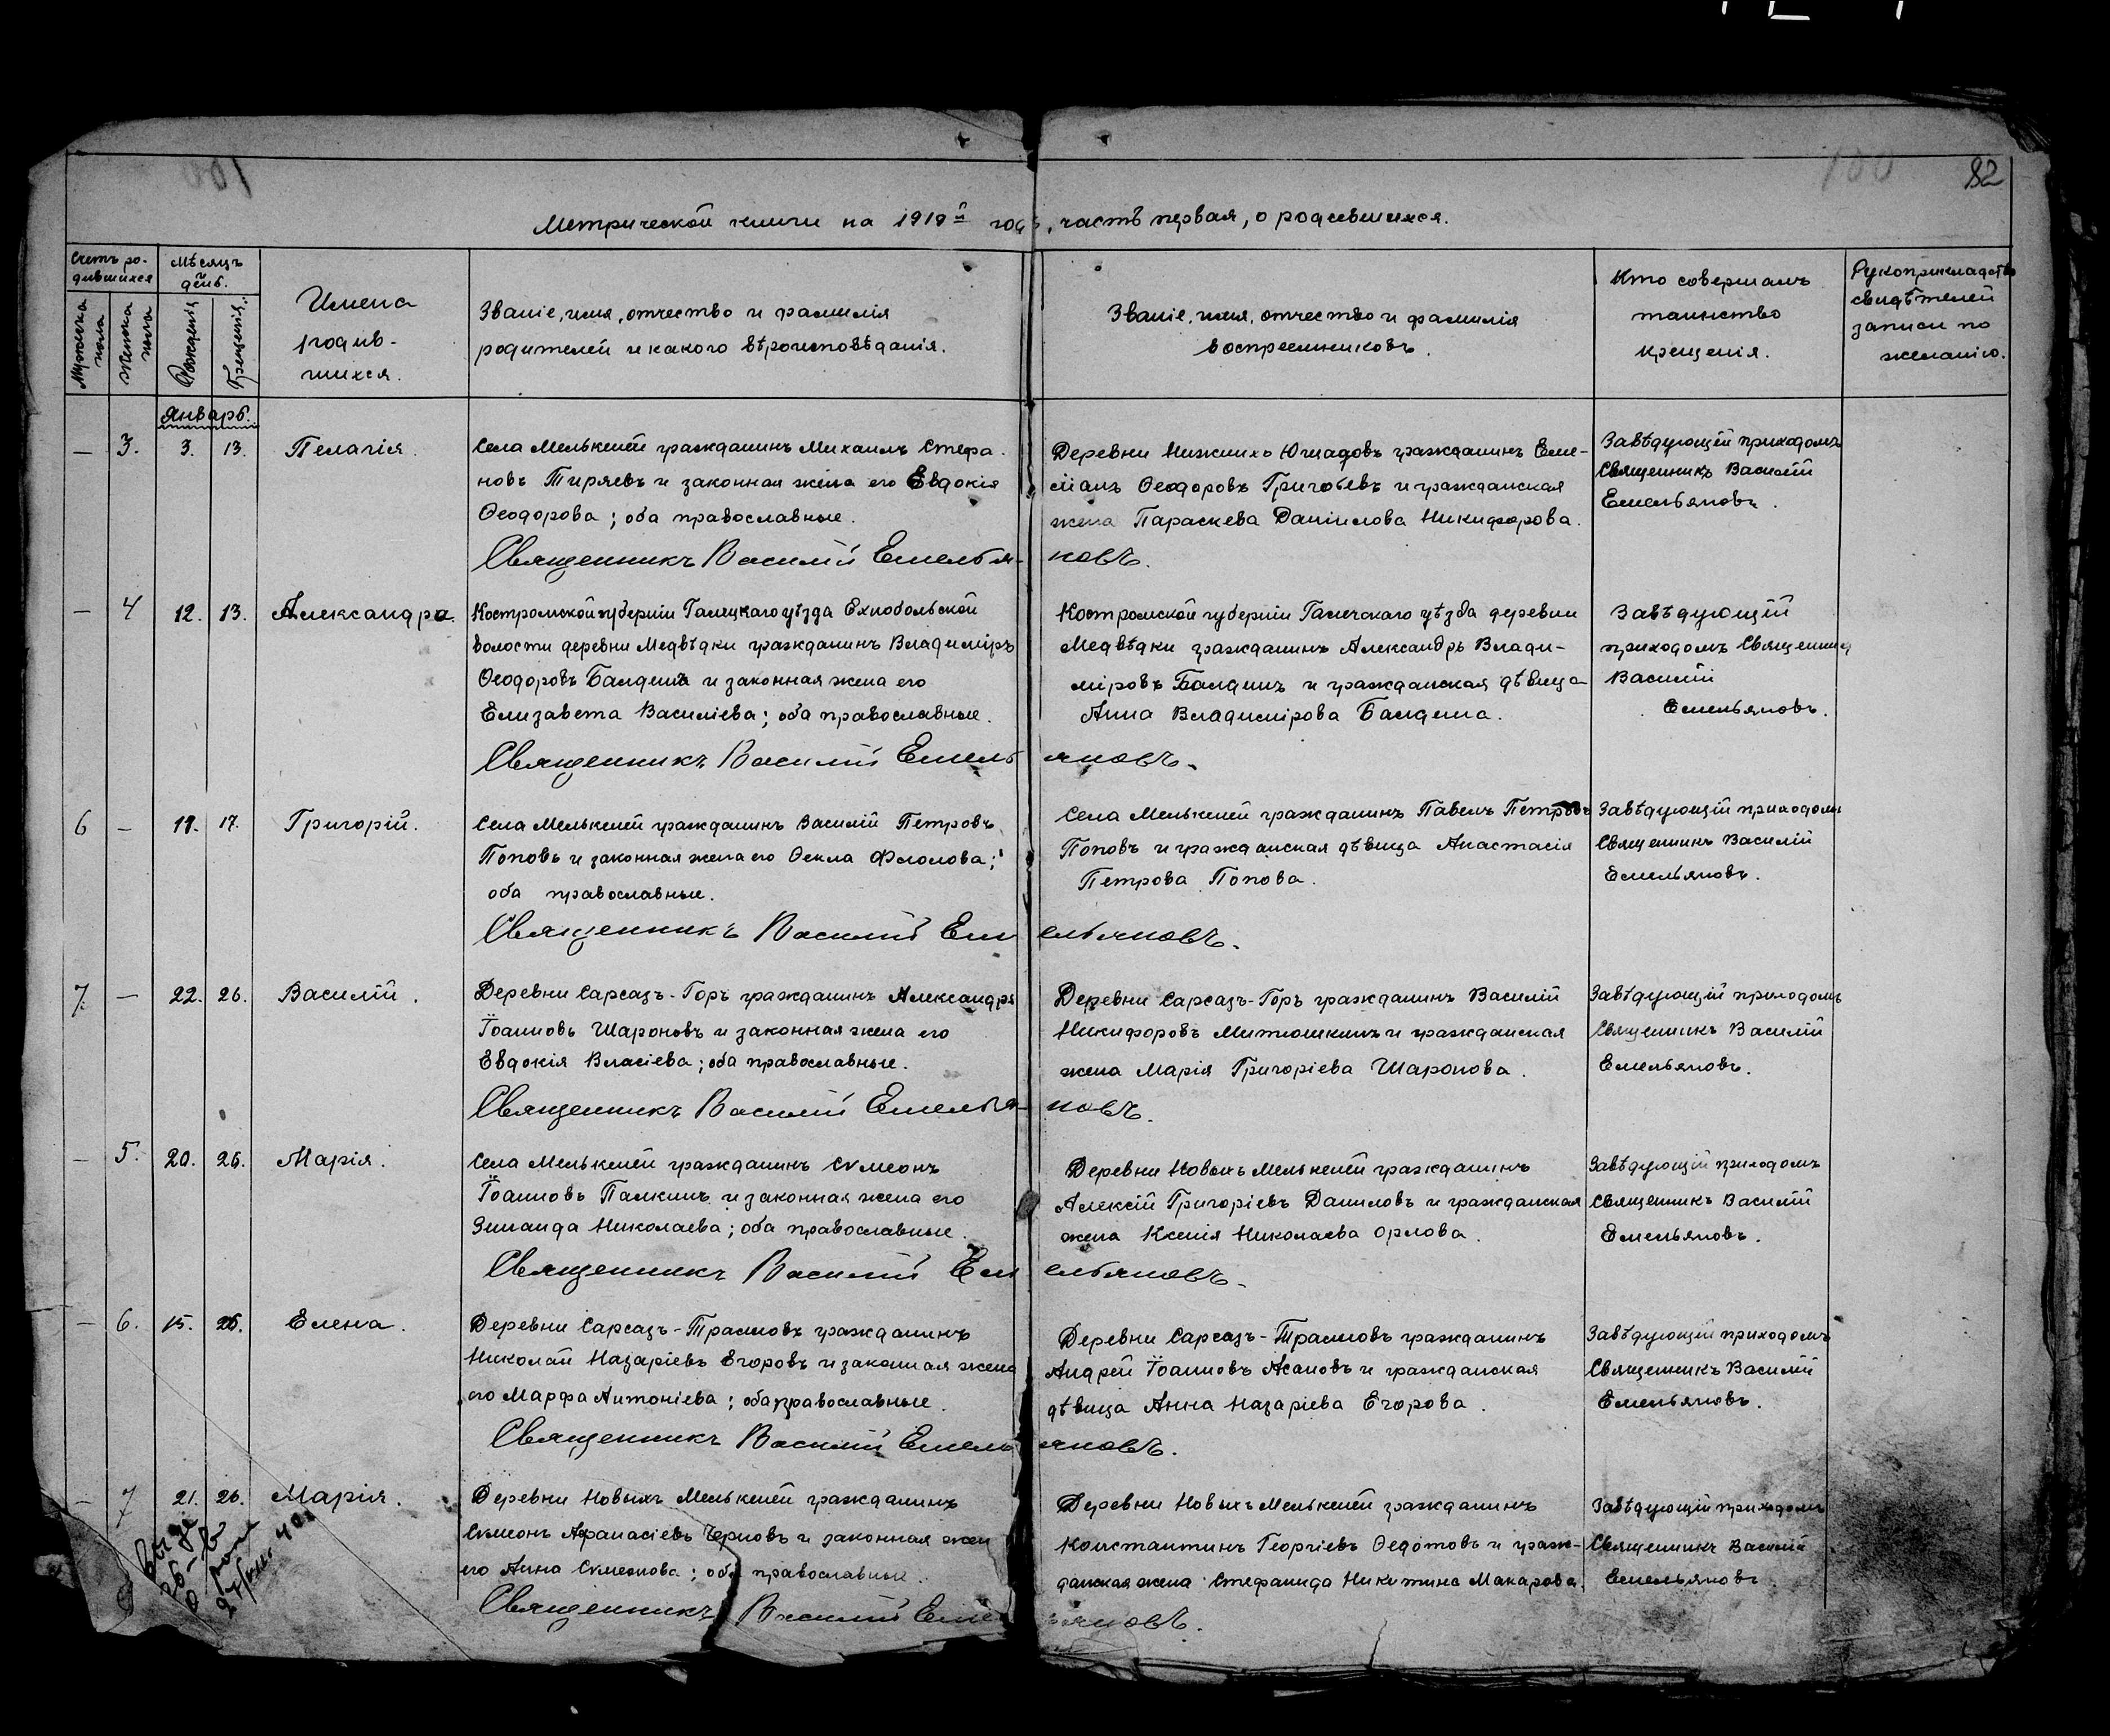 100
100
82
Метрической книги на 1919й годъ, часть первая, о родившихся.
Счетъ ро-
дившихся
Мужеска
пола
Женска
пола
Мѣсяцъ
и
день.
Рожденія
Крещенія.
Имена
родив-
шихся.
Званіе, имя, отчество и фамилія
родителей и какого вѣроисповѣданія.
Званіе, имя, отчество и фамилія
воспреемниковъ.
Кто совершалъ
таинство
крещенія.
Рукоприкладство
свидѣтелей
записи по
желанію.
Январь.
— 3. 3. 13. Пелагія.
Села Мелькеней гражданинъ Михаилъ Стефа-
новъ Тиряевъ и законная жена его Евдокія
Ѳеодорова; оба православные.
Деревни Нижнихъ Юшадовъ гражданинъ Еме-
ліанъ Ѳеодоровъ Григорьевъ и гражданская
жена Параскева Даніилова Никифорова.
Завѣдующій приходомъ
Священникъ Василій
Емельяновъ.
Священникъ Василій Емельяновъ.
— 4 12. 13. Александра.
Костромской губерніи Галицкаго уѣзда
волости деревни Медвѣдки гражданинъ Владиміръ
Ѳеодоровъ Балдинъ и законная жена его
Елизавета Василіева; оба православные.
Костромской губерніи Галичскаго уѣзда деревни
Медвѣдки гражданинъ Александръ Влади-
міровъ Балдинъ и гражданская дѣвица
Анна Владимірова Балдина.
Завѣдующій
приходомъ Священникъ
Василій
Емельяновъ.
Священникъ Василій Емельяновъ.
6 — 17. Григорій.
Села Мелькеней гражданинъ Василій Петровъ
Поповъ и законная жена его Ѳекла Фролова;
оба православные.
Села Мелькеней гражданинъ Павелъ Петровъ
Поповъ и гражданская дѣвица Анастасія
Петрова Попова.
Завѣдующій приходомъ
Священникъ Василій
Емельяновъ.
Священникъ Василій Емельяновъ.
7. — 22. 26. Василій.
Деревни Сарсазъ-Горъ гражданинъ Александръ
Іоанновъ Шароновъ и законная жена его
Евдокія Власіева; оба православные.
Деревни Сарсазъ-Горъ гражданинъ Василій
Никифоровъ Митюшкинъ и гражданская
жена Марія Григоріева Шаронова.
Завѣдующій приходомъ
Священникъ Василій
Емельяновъ.
Священникъ Василій Емельяновъ.
— 5. 20. 26. Марія.
Села Мелькеней гражданинъ Сѵмеонъ
Іоанновъ Палкинъ и законная жена его
Зинаида Николаева; оба православные.
Деревни Новыхъ Мелькеней гражданинъ
Алексій Григоріевъ Даниловъ и гражданская
жена Ксенія Николаева Орлова.
Завѣдующій приходомъ
Священникъ Василій
Емельяновъ.
Священникъ Василій Емельяновъ.
— 6. 15. 26. Елена.
Деревни Сарсазъ-Траловъ гражданинъ
Николай Назаріевъ Егоровъ и законная жена
его Марфа Антоніева; оба православные.
Деревни Сарсазъ-Траловъ гражданинъ
Андрей Іоанновъ Асановъ и гражданская
дѣвица Анна Назаріева Егорова.
Завѣдующій приходомъ
Священникъ Василій
Емельяновъ.
Священникъ Василій Емельяновъ.
— 7 21. 26. Марія.
Деревни Новыхъ Мелькеней гражданинъ
Сѵмеонъ Афанасіевъ Черновъ и законная жена
его Анна Сѵмеонова; оба православные.
Деревни Новыхъ Мелькеней гражданинъ
Константинъ Георгіевъ Ѳедотовъ и граж-
данская жена Стефанида Никитина Макарова.
Завѣдующій приходомъ
Священникъ Василій
Емельяновъ
Священникъ Василій Емельяновъ.